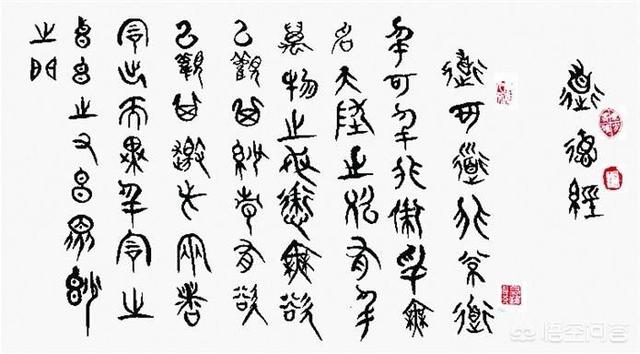 道德經
道可道非常道
名可名非常名無
名天地之始有名
萬物之母無欲
以觀其妙常有欲
以觀其徼兩者
同出而異名同之
玄之又玄眾妙
之門
悟空问答